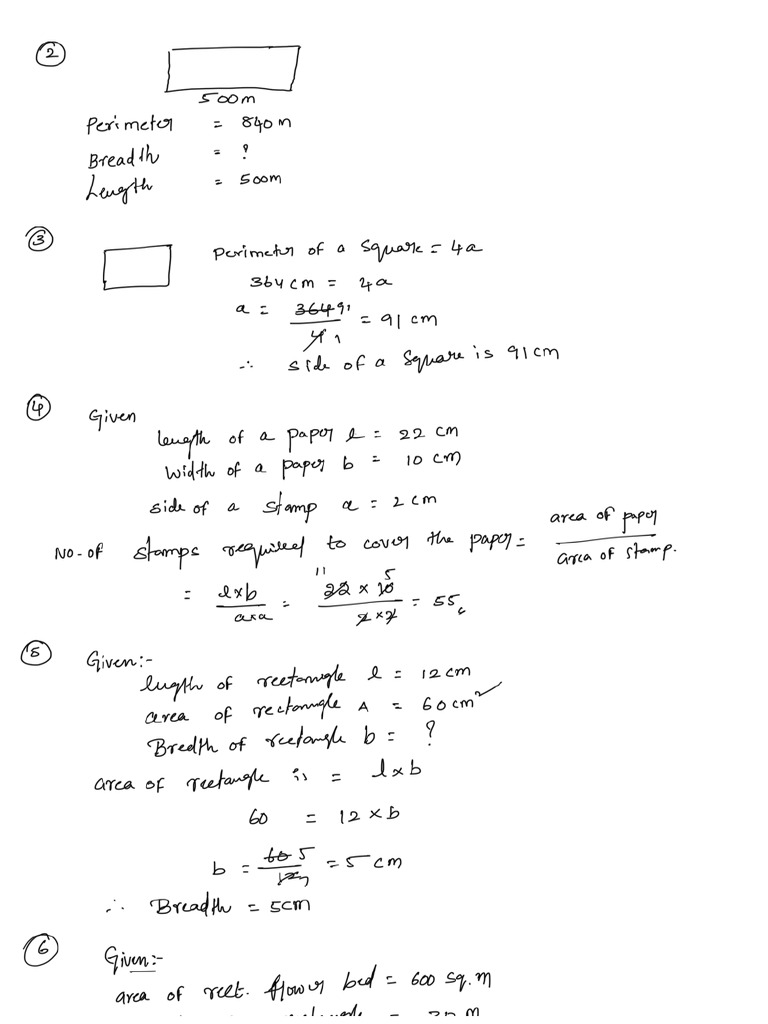 2
500m
Perimeter = 840 m
Breadth = ?
Length = 500m
3
Perimeter of a square = 4a
364 cm = 4a
a = 364 91 / 4 1 = 91 cm
∴ side of a square is 91 cm
4 Given
length of a paper l = 22 cm
width of a paper b = 10 cm
side of a stamp a = 2 cm
No-of stamps required to cover the paper = area of paper / area of stamp.
= l×b / axa = 11 22 × 10 5 / 2 × 2 = 55
5 Given:-
length of rectangle l = 12 cm
area of rectangle A = 60 cm²
Bredth of rectangle b = ?
area of rectangle is = l×b
60 = 12 × b
b = 60 5 / 12 1 = 5 cm
∴ Breadth = 5cm
6 Given:-
area of rect. flower bed = 600 sq.m